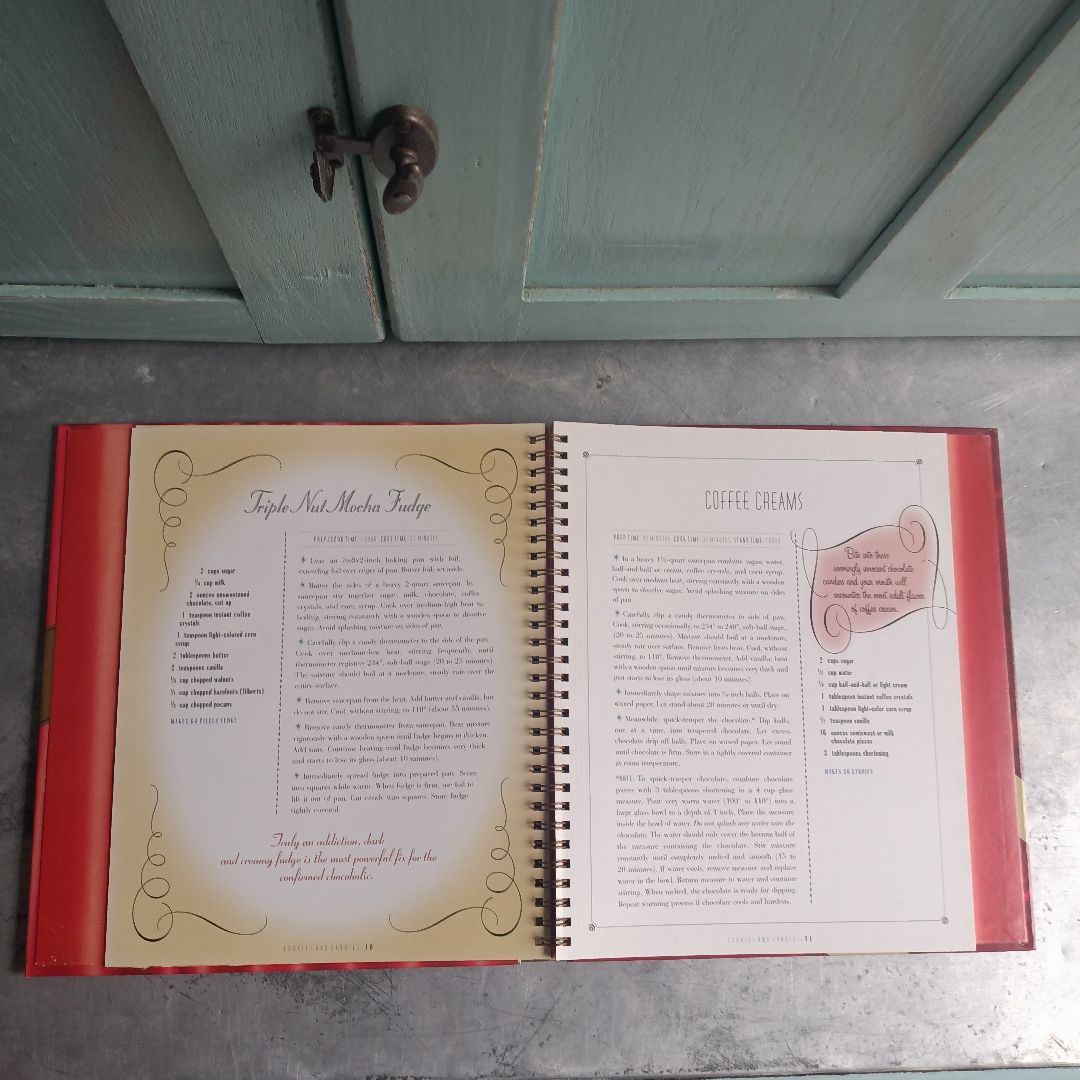 Triple Nut Mocha Fudge
PREPARATION TIME 1 HOUR COOK TIME 35 MINUTES
2 cups sugar
¾ cup milk
2 ounces unsweetened
chocolate, cut up
1 teaspoon instant coffee
crystals
1 teaspoon light-colored corn
syrup
2 tablespoons butter
2 teaspoons vanilla
⅓ cup chopped walnuts
⅓ cup chopped hazelnuts (filberts)
⅓ cup chopped pecans
MAKES 64 PIECES FUDGE
* Line an 8x8x2-inch baking pan with foil,
extending foil over edges of pan. Butter foil; set aside.
* Butter the sides of a heavy 2-quart saucepan. In
saucepan stir together sugar, milk, chocolate, coffee
crystals, and corn syrup. Cook over medium-high heat to
boiling, stirring constantly with a wooden spoon to dissolve
sugar. Avoid splashing mixture on sides of pan.
* Carefully clip a candy thermometer to the side of the pan.
Cook over medium-low heat, stirring frequently, until
thermometer registers 234°, soft-ball stage (20 to 25 minutes).
The mixture should boil at a moderate, steady rate over the
entire surface.
* Remove saucepan from the heat. Add butter and vanilla, but
do not stir. Cool, without stirring, to 110° (about 55 minutes).
* Remove candy thermometer from saucepan. Beat mixture
vigorously with a wooden spoon until fudge begins to thicken.
Add nuts. Continue beating until fudge becomes very thick
and starts to lose its gloss (about 10 minutes).
* Immediately spread fudge into prepared pan. Score
into squares while warm. When fudge is firm, use foil to
lift it out of pan. Cut candy into squares. Store fudge
tightly covered.
Truly an addiction, dark
and creamy fudge is the most powerful fix for the
confirmed chocoholic.
COOKIES AND CANDIES-10
COFFEE CREAMS
PREP TIME MINUTES COOK TIME MINUTES STAND TIME 1 HOUR
* In a heavy 1½-quart saucepan combine sugar, water,
half-and-half or cream, coffee crystals, and corn syrup.
Cook over medium heat, stirring constantly with a wooden
spoon to dissolve sugar. Avoid splashing mixture on sides
of pan.
* Carefully clip a candy thermometer to side of pan.
Cook, stirring occasionally, to 234° to 240°, soft-ball stage,
(20 to 25 minutes). Mixture should boil at a moderate,
steady rate over surface. Remove from heat. Cool, without
stirring, to 110°. Remove thermometer. Add vanilla; beat
with a wooden spoon until mixture becomes very thick and
just starts to lose its gloss (about 10 minutes).
* Immediately shape mixture into ¾-inch balls. Place on
waxed paper. Let stand about 20 minutes or until dry.
* Meanwhile, quick-temper the chocolate.* Dip balls,
one at a time, into tempered chocolate. Let excess
chocolate drip off balls. Place on waxed paper. Let stand
until chocolate is firm. Store in a tightly covered container
at room temperature.
*NOTE: To quick-temper chocolate, combine chocolate
pieces with 3 tablespoons shortening in a 4 cup glass
measure. Pour very warm water (100° to 110°) into a
large glass bowl to a depth of 1 inch. Place the measure
inside the bowl of water. Do not splash any water into the
chocolate. The water should only cover the bottom half of
the measure containing the chocolate. Stir mixture
constantly until completely melted and smooth (15 to
20 minutes). If water cools, remove measure and replace
water in the bowl. Return measure to water and continue
stirring. When melted, the chocolate is ready for dipping.
Repeat warming process if chocolate cools and hardens.
Bite into these
seemingly innocent chocolate
candies and your mouth will
encounter the most adult flavor
of coffee cream.
2 cups sugar
½ cup water
¼ cup half-and-half or light cream
1 tablespoon instant coffee crystals
1 tablespoon light-color corn syrup
½ teaspoon vanilla
16 ounces semisweet or milk
chocolate pieces
3 tablespoons shortening
MAKES 36 CANDIES
COOKIES AND CANDIES-11